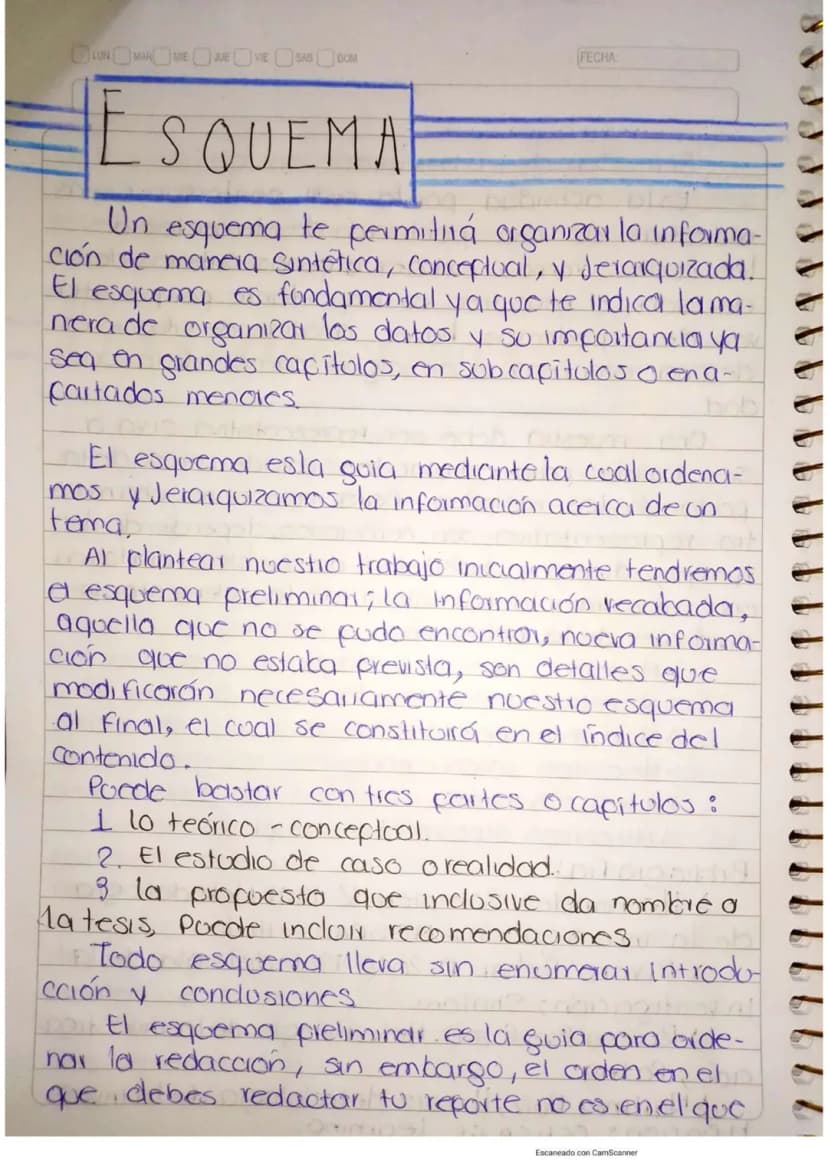 LUN MAR MIE JUE VIE SAB DOM FECHA:
ESQUEMA
Un esquema te permitirá organizar la informa-
ción de manera sintética, conceptual, y Jerarquizada.
El esquema es fundamental ya que te indica la ma-
nera de organizar los datos y su importancia ya
sea en grandes capítulos, en subcapitulos o en a-
partados menores.
El esquema es la guia mediante la cual ordena-
mos y Jerarquizamos la información acerca de un
tema.
Al plantear nuestro trabajo inicialmente tendremos
el esquema preliminar; la información recabada,
aquella que no se pudo encontrar, nueva informa-
ción que no estaba prevista, son detalles que
modificarán necesariamente nuestro esquema
al final, el cual se constituirá en el índice del
contenido.
Puede bastar con tres partes o capítulos:
1 lo teórico - conceptual.
2. El estudio de caso o realidad.
3 la propuesto que inclusive da nombre a
la tesis, Puede incluir recomendaciones
Todo esquema lleva sin enumerar introdu-
cción y conclusiones
El esquema preliminar es la guia para orde-
nar la redacción, sin embargo, el orden en el
que debes redactar tu reporte no es en el que
Escaneado con CamScanner